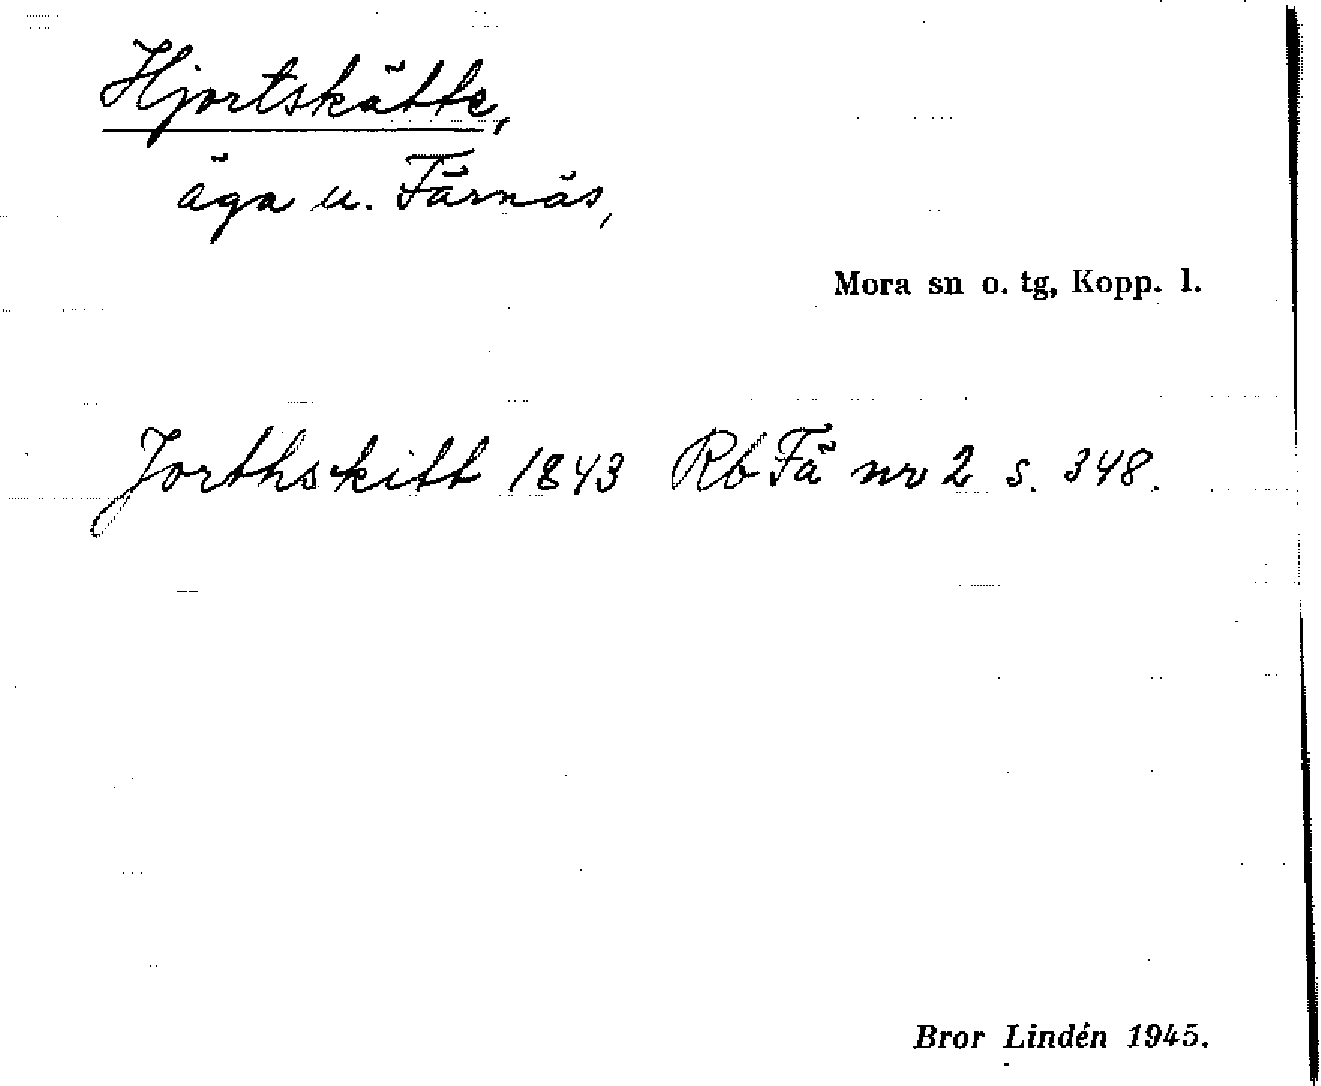 Hjortskätte,
äga u. Färnäs,
Mora sn o. tg, Kopp. l.
Jorthskitt 1843 Rb Fä nr 2 s. 348.
Bror Lindén 1945.